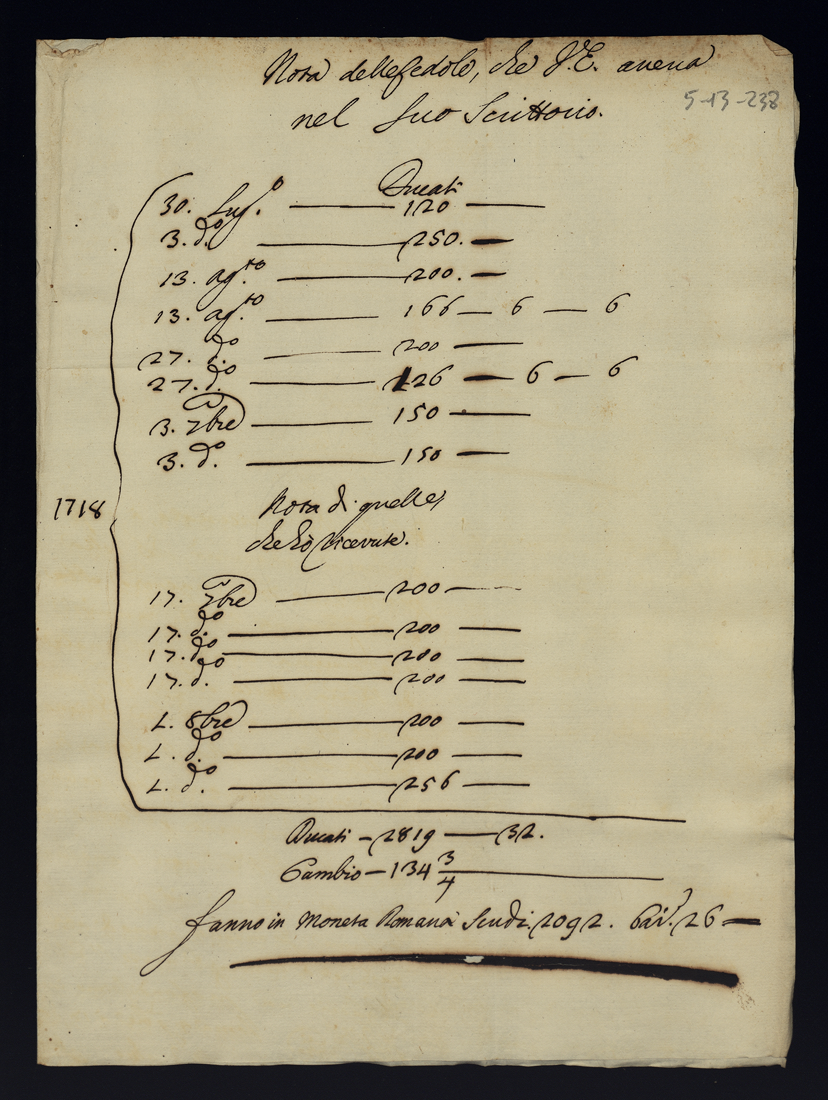 Nota delle Cedole, che V.E. aveva
5-13-238
nel suo Scrittorio.
Ducati
30. Lug.o — 120 —
3. d.o — 250. —
13. ag.to — 200. —
13. ag.to — 166 — 6 — 6
27. d.o — 200 —
27. d.o — 126 — 6 — 6
3. 7bre — 150 —
3. d.o — 150 —
1718
Nota di quelle,
che hò ricevute.
17. 7bre — 200 —
17. d.o — 200 —
17. d.o — 200 —
17. d.o — 200 —
1. 8bre — 200 —
1. d.o — 200 —
1. d.o — 256 —
Ducati — 2819 — 32.
Cambio — 134 3/4 —
fanno in Moneta Romana Scudi 2092. 26 —